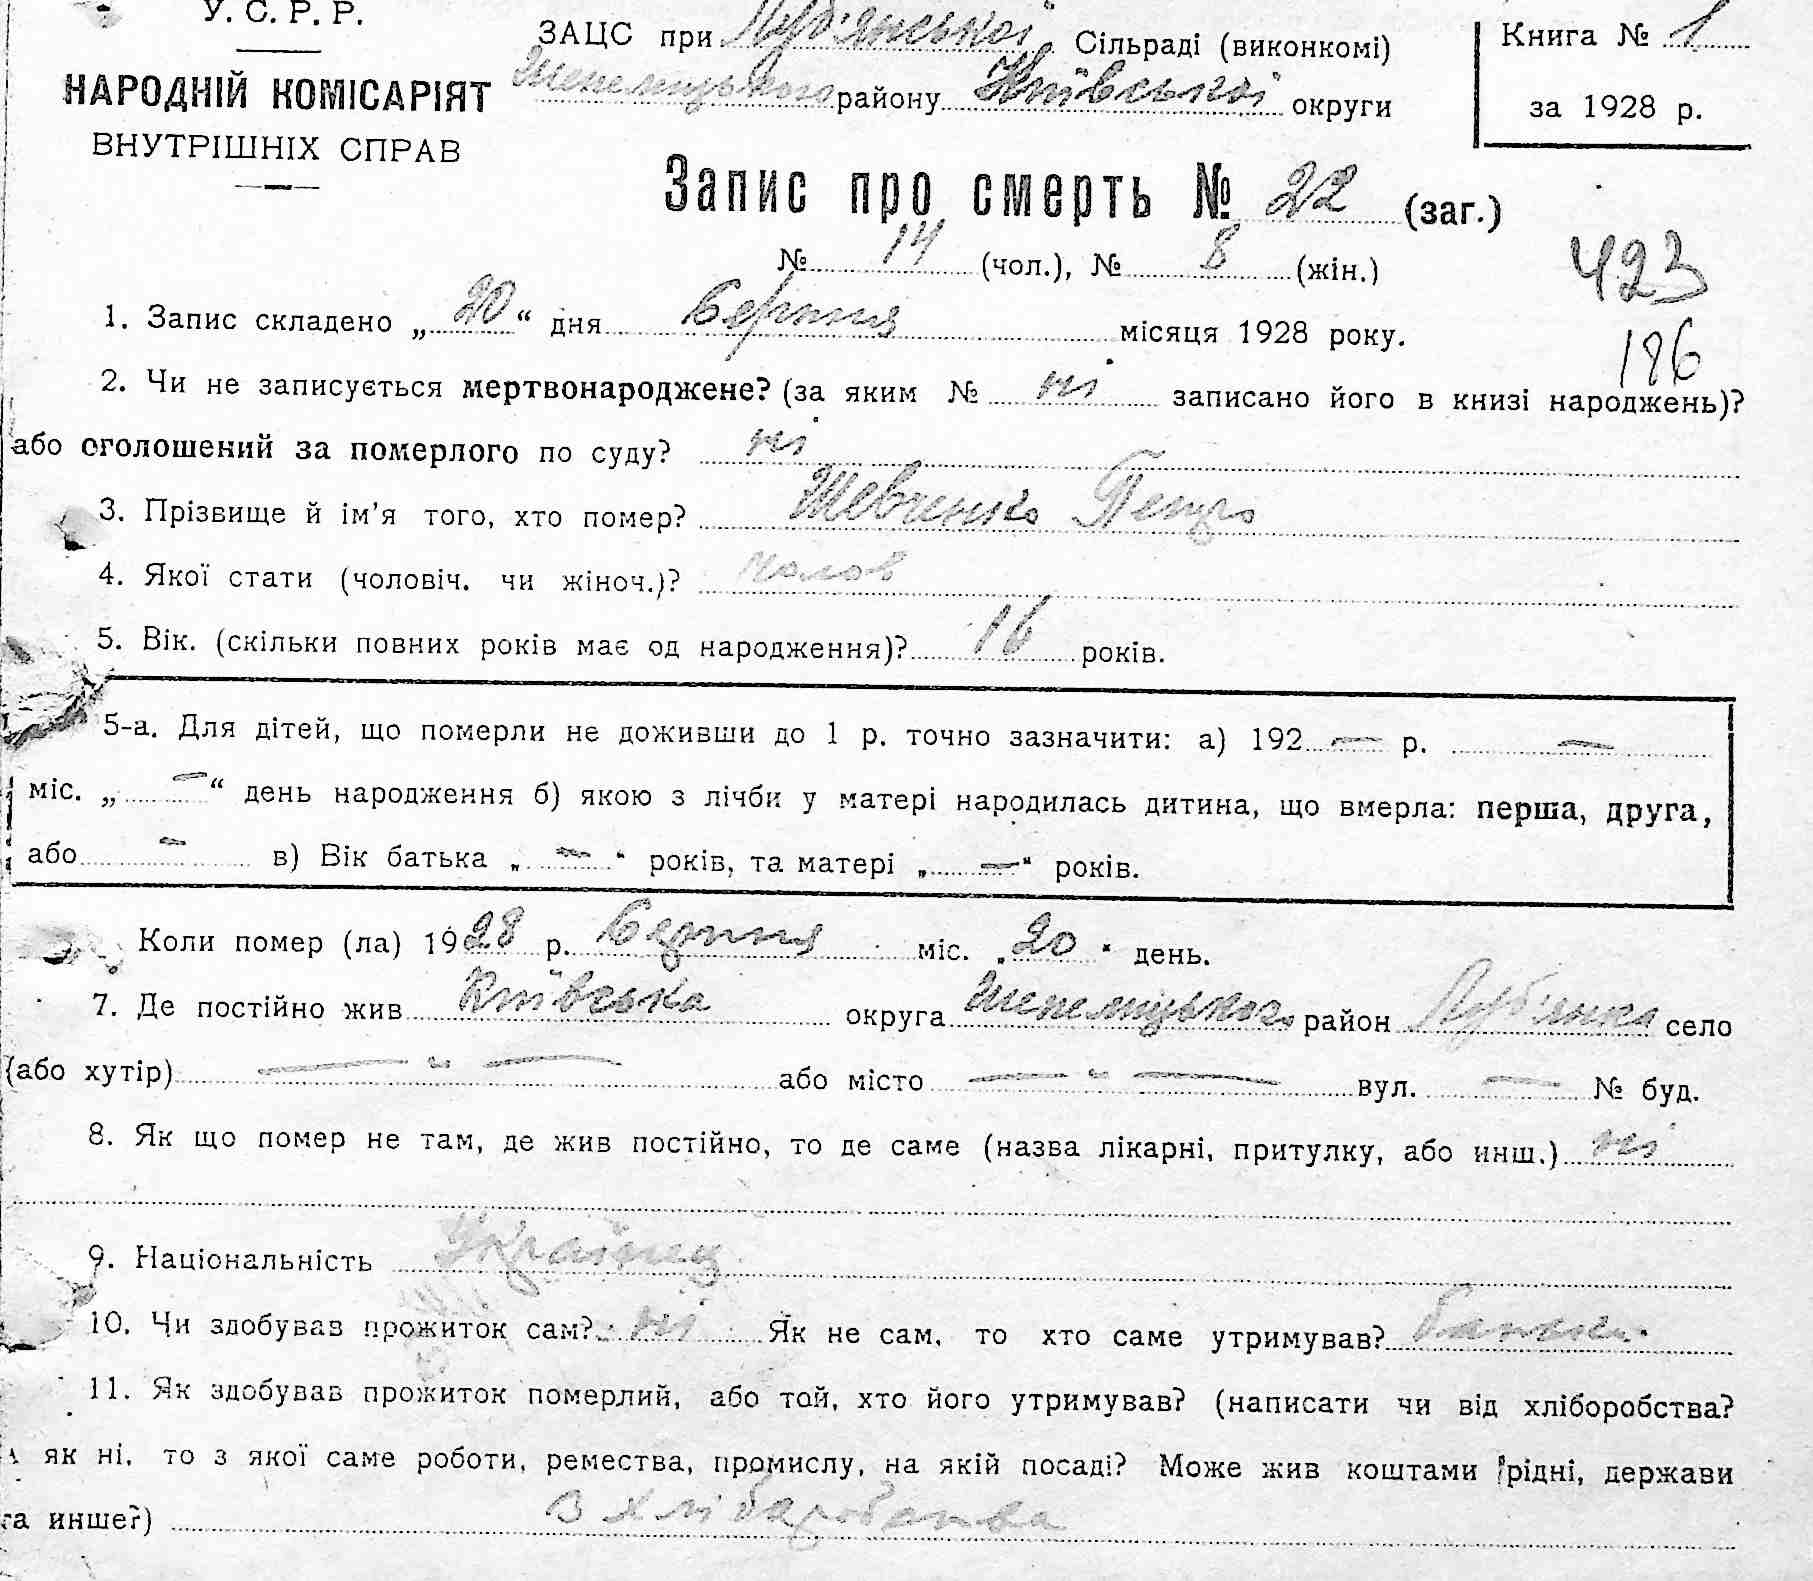 У. С. Р. Р.
НАРОДНІЙ КОМІСАРІЯТ
ВНУТРІШНІХ СПРАВ
ЗАЦС при Луб'янської Сільраді (виконкомі)
Шепелицького району Київської округи
Книга № 1
за 1928 р.
Запис про смерть № 22 (заг.)
№ 14 (чол.), № 8 (жін.)
423
1. Запис складено „20“ дня Серпня місяця 1928 року.
186
2. Чи не записується мертвонароджене? (за яким № ні записано його в книзі народжень)?
або оголошений за померлого по суду? ні
3. Прізвище й ім'я того, хто помер? Шевченко Петро
4. Якої стати (чоловіч. чи жіноч.)?
5. Вік. (скільки повних років має од народження)? 16 років.
5-а. Для дітей, що померли не доживши до 1 р. точно зазначити: а) 192 — р. —
міс. „ — “ день народження б) якою з лічби у матері народилась дитина, що вмерла: перша, друга,
або — в) Вік батька „ — “ років, та матері „ — “ років.
Коли помер (ла) 1928 р. Серпня міс. „20“ день.
7. Де постійно жив Київська округа Шепелицького район Луб'янка село
(або хутір) — „ — або місто — „ — вул. — № буд.
8. Як що помер не там, де жив постійно, то де саме (назва лікарні, притулку, або инш.) ні
9. Національність Українец
10. Чи здобував прожиток сам? ні Як не сам, то хто саме утримував? батьки
11. Як здобував прожиток померлий, або той, хто його утримував? (написати чи від хліборобства?
як ні, то з якої саме роботи, ремества, промислу, на якій посаді? Може жив коштами рідні, держави
та инше?) З хлібаробства